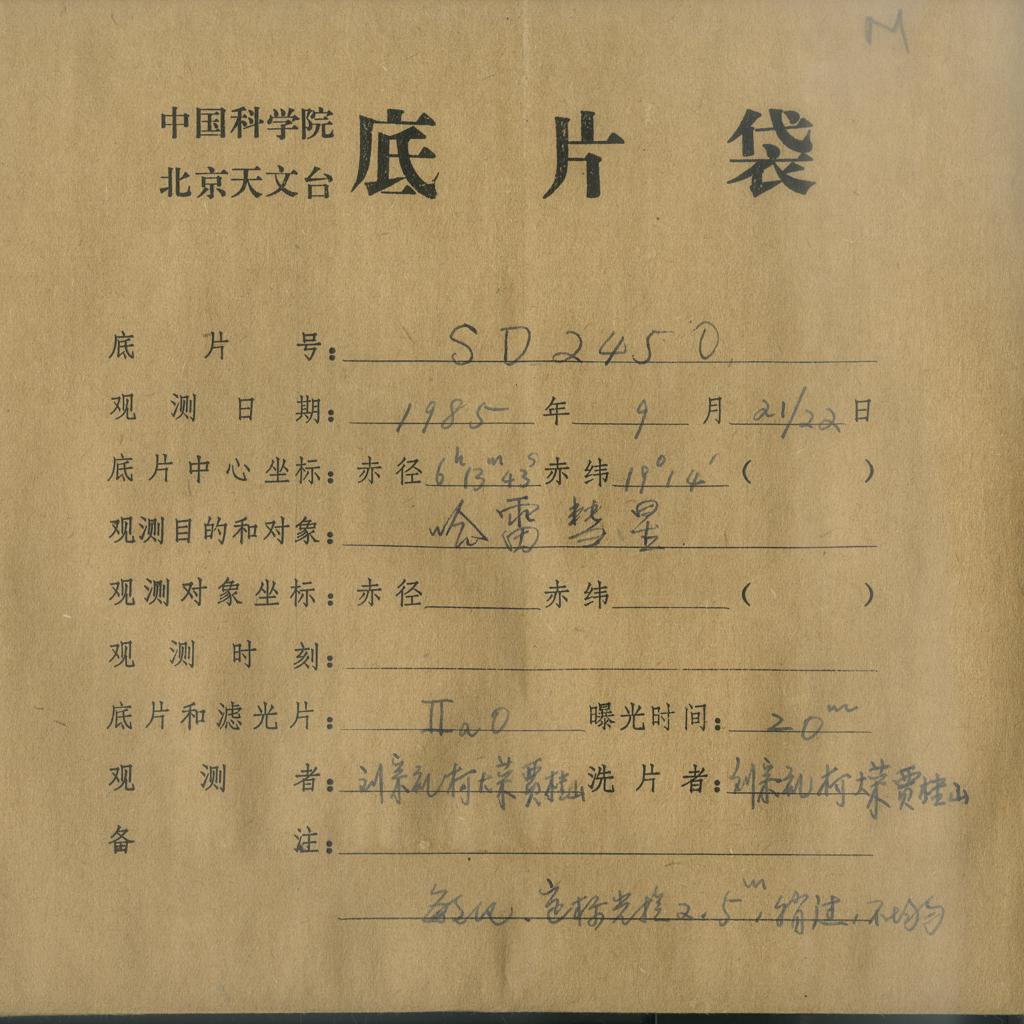 M
中国科学院
北京天文台 底片袋
底片号：SD2450
观测日期：1985年9月21/22日
底片中心坐标：赤径6h13m43s赤纬19°14′（ ）
观测目的和对象：哈雷彗星
观测对象坐标：赤径 赤纬 （ ）
观测时刻：
底片和滤光片：IIaO 曝光时间：20m
观测者：刘宗礼柯大荣贾桂山 洗片者：刘宗礼柯大荣贾桂山
备注：
敏化、定标光楔2.5m，稍浅，不均匀